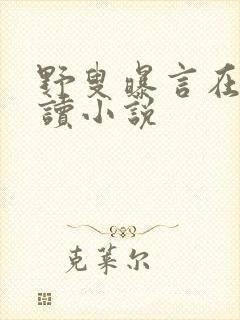 野叟曝言在
讀小說
克莱尔